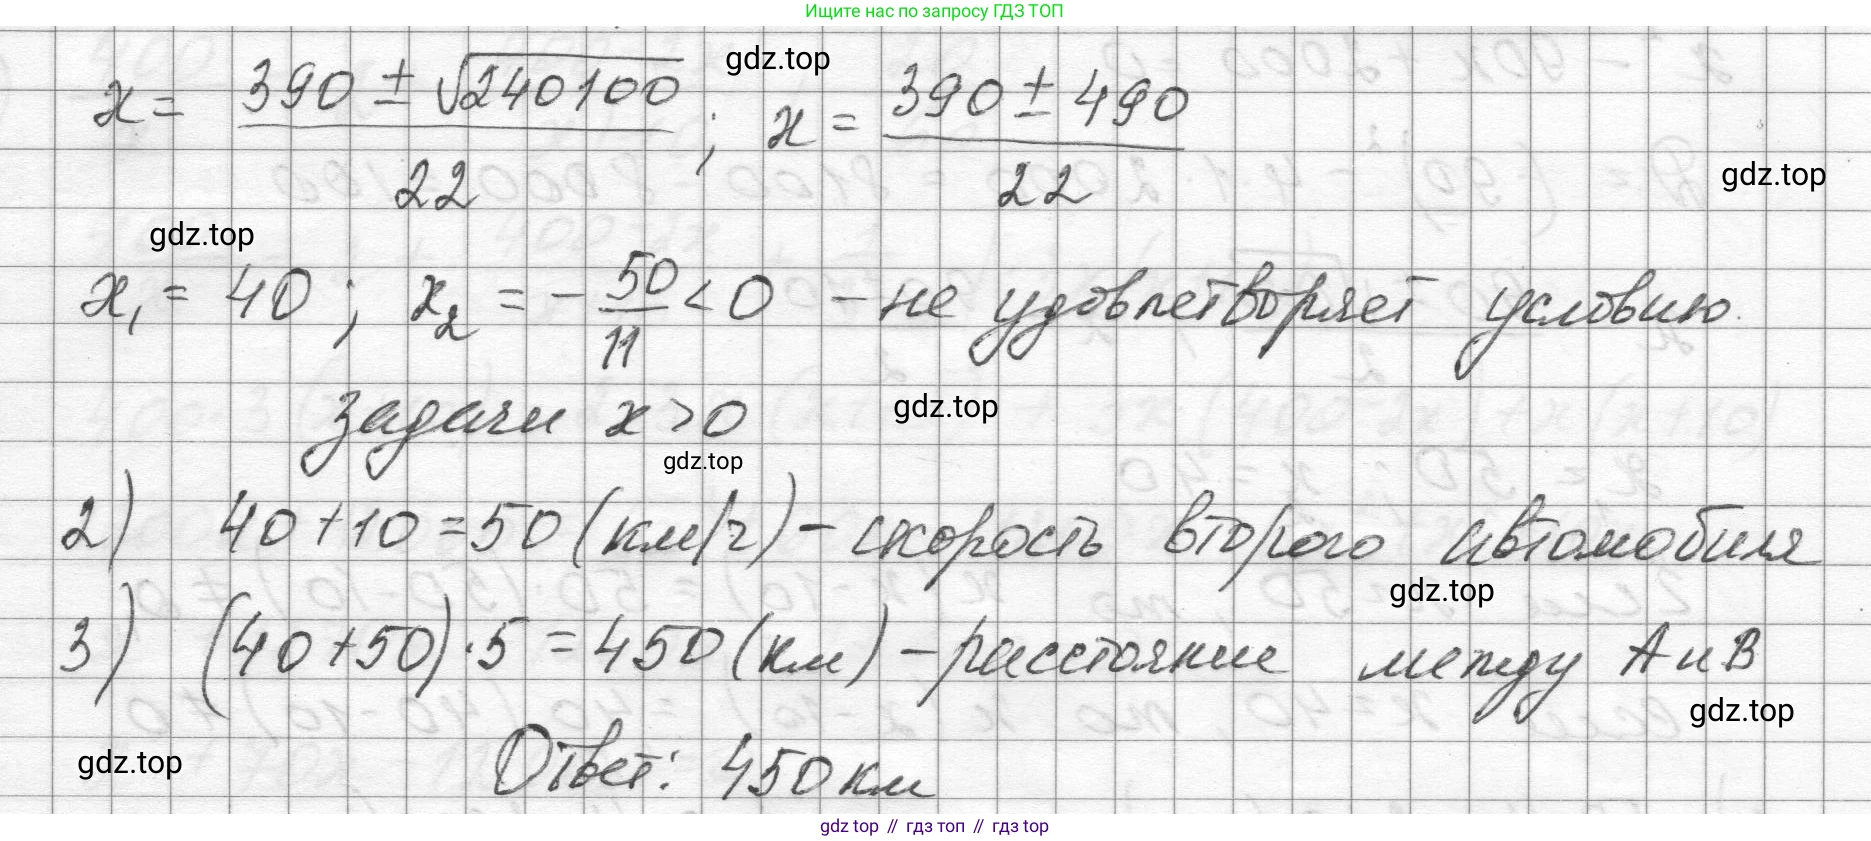 Ищите нас по запросу ГДЗ ТОП
x = (390 ± √240100)/22 ; x = (390 ± 490)/22
gdz.top
gdz.top
gdz.top
x₁ = 40 ; x₂ = - 50/11 < 0 - не удовлетворяет условию
задачи x > 0
gdz.top
gdz.top
2) 40 + 10 = 50 (км/ч) - скорость второго автомобиля
gdz.top
3) (40 + 50) · 5 = 450 (км) - расстояние между А и В
gdz.top
Ответ: 450 км
gdz.top
gdz top // гдз топ // гдз top